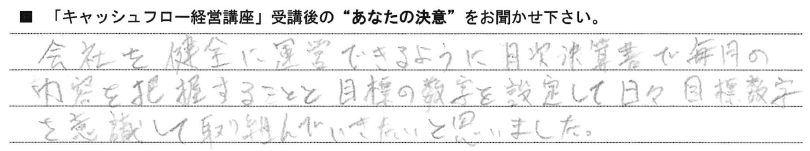 ■ 「キャッシュフロー経営講座」受講後の“あなたの決意”をお聞かせ下さい。
会社を健全に運営できるように月次決算書で毎月の
内容を把握することと目標の数字を設定して日々目標数字
を意識して取り組んでいきたいと思いました。